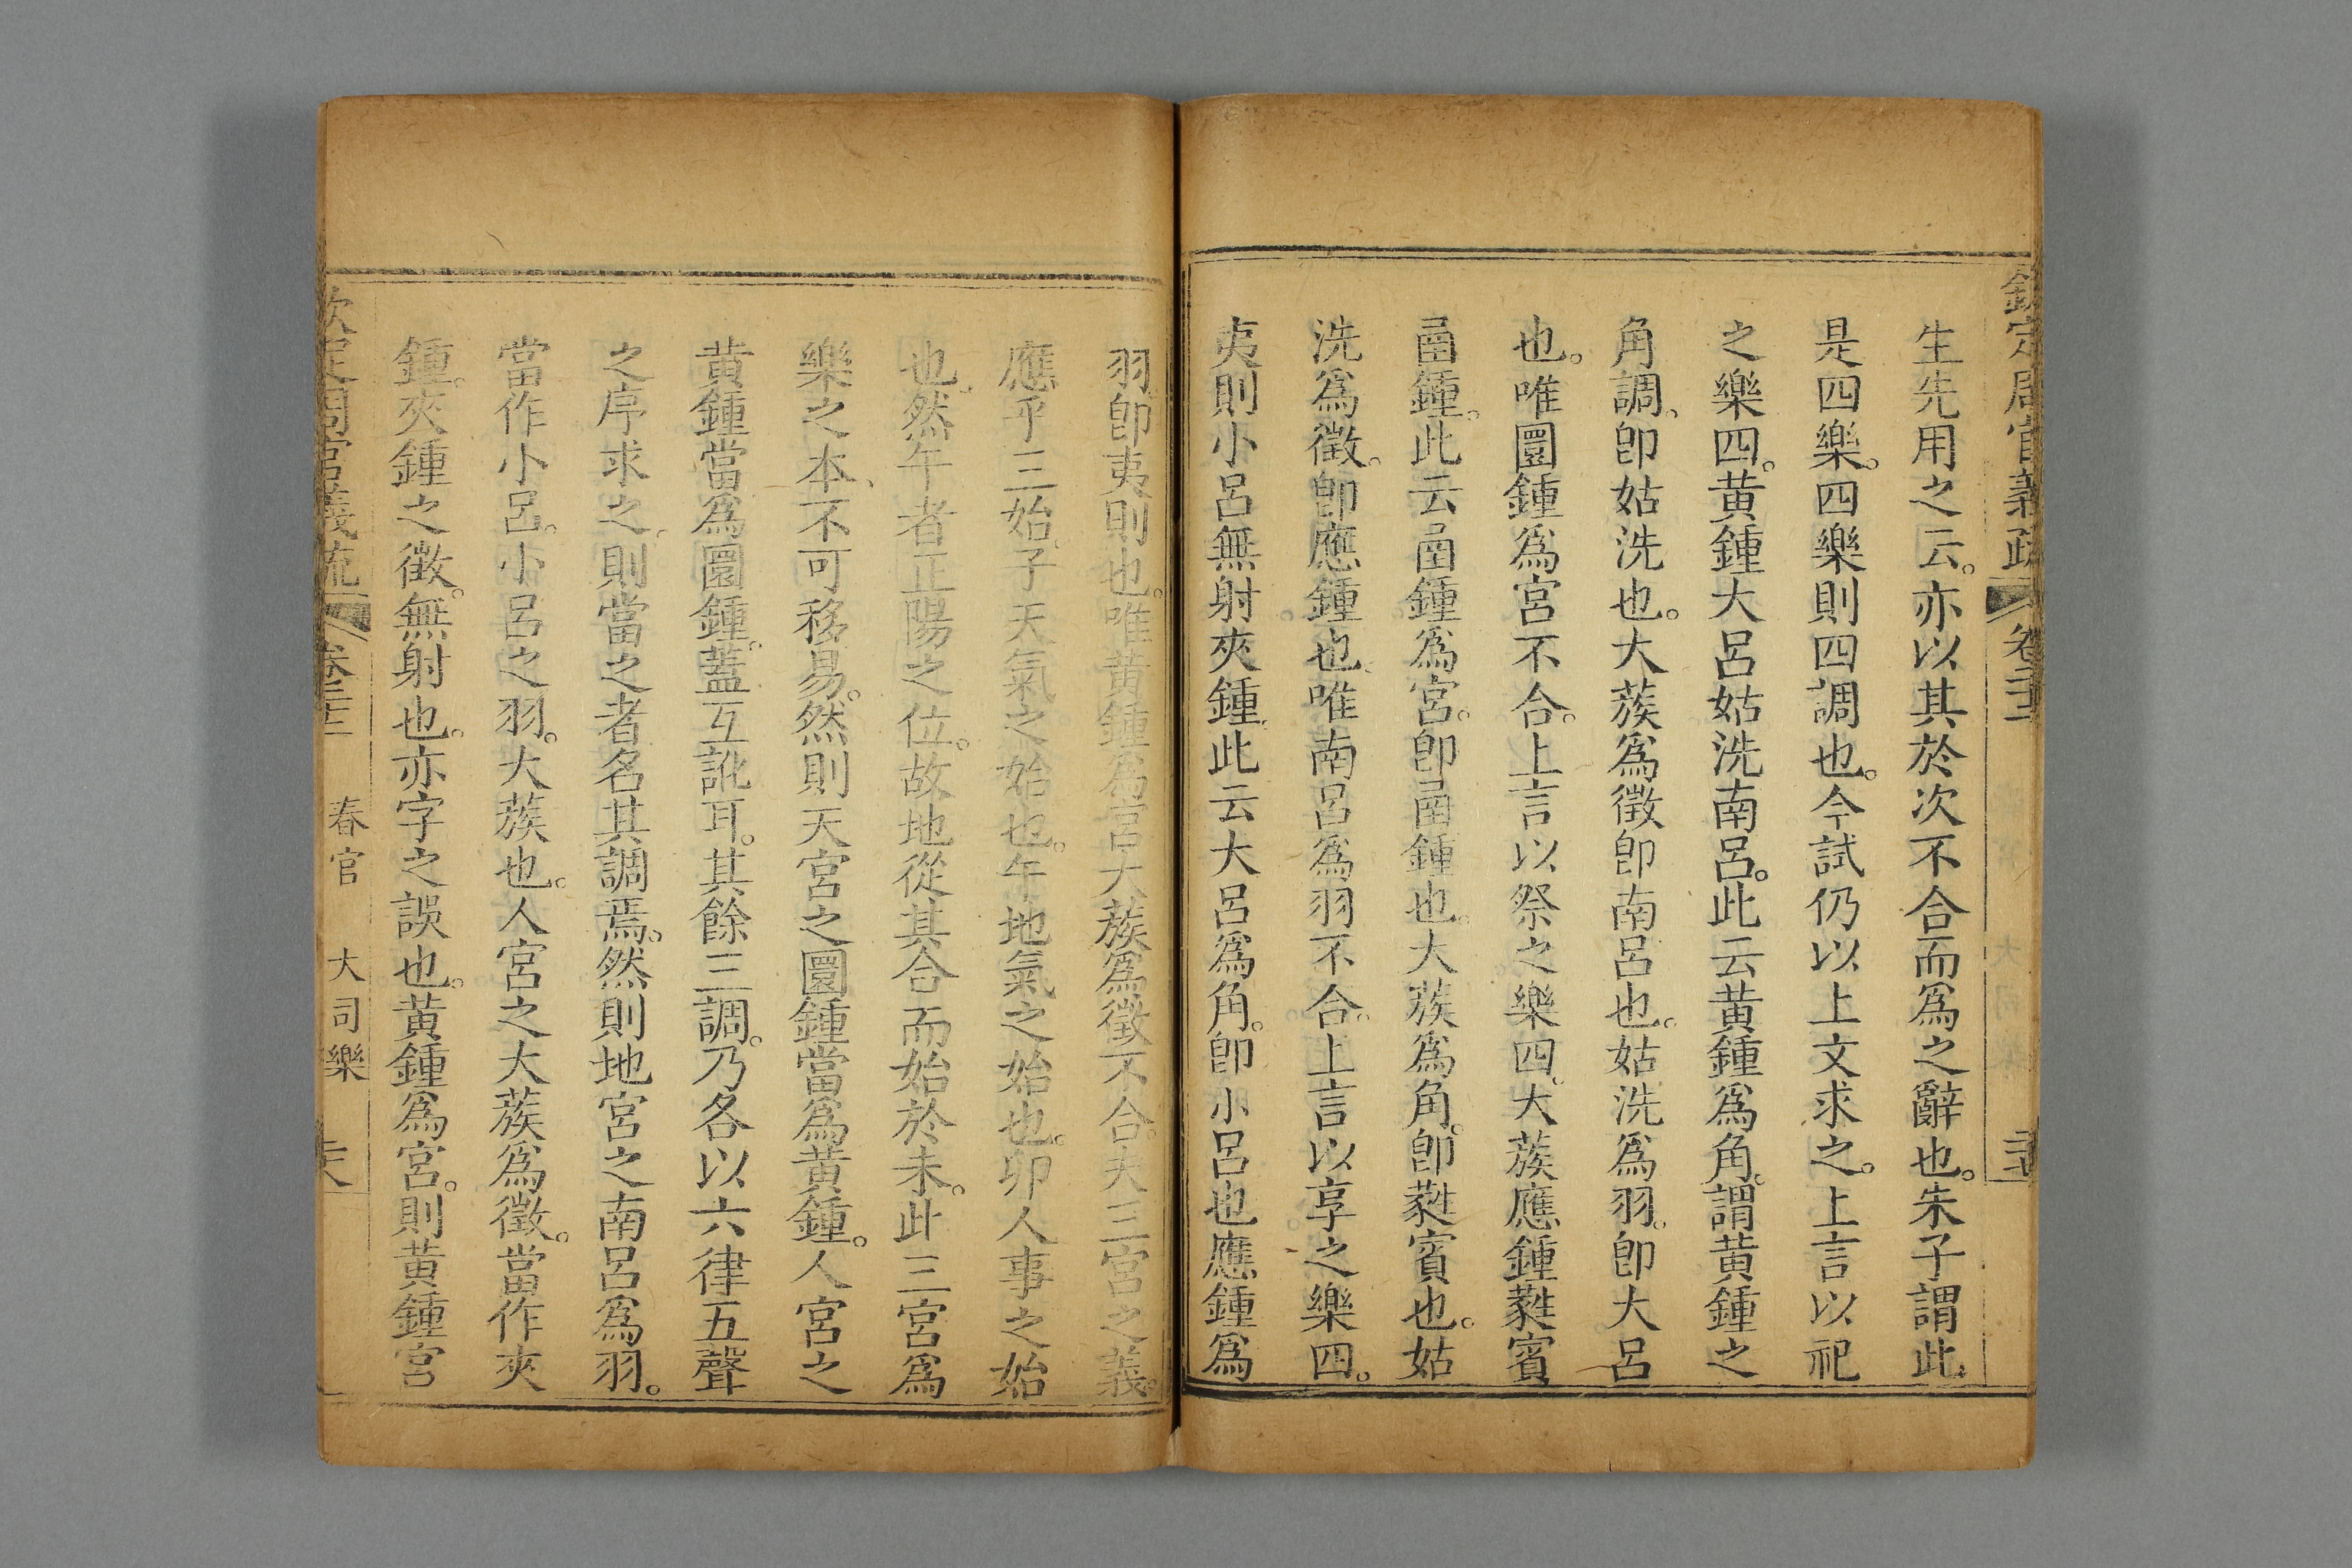 欽定周官義疏 卷二十二
生先用之云。亦以其於次不合而爲之辭也。朱子謂此
是四樂。四樂則四調也。今試仍以上文求之。上言以祀
之樂四。黃鍾大呂姑洗南呂。此云黃鍾爲角。謂黃鍾之
角調。卽姑洗也。大蔟爲徵卽南呂也。姑洗爲羽。卽大呂
也。唯圜鍾爲宮不合。上言以祭之樂四。大蔟應鍾蕤賓
圅鍾。此云圅鍾爲宮。卽圅鍾也。大蔟爲角。卽蕤賓也。姑
洗爲徵。卽應鍾也。唯南呂爲羽不合。上言以享之樂四。
夷則小呂無射夾鍾。此云大呂爲角。卽小呂也應鍾爲
羽。卽夷則也。唯黃鍾爲宮大蔟爲徵不合。夫三宮之義。
應乎三始。子天氣之始也。午地氣之始也。卯人事之始
也。然午者正陽之位。故地從其合而始於未。此三宮爲
樂之本、不可移易。然則天宮之圜鍾當爲黃鍾。人宮之
黃鍾當爲圜鍾。蓋互訛耳。其餘三調。乃各以六律五聲
之序求之。則當之者名其調焉。然則地宮之南呂爲羽。
當作小呂。小呂之羽。大蔟也。人宮之大蔟爲徵。當作夾
鍾。夾鍾之徵。無射也。亦字之誤也。黃鍾爲宮。則黃鍾宮
欽定周官義疏 卷二十二 春官 大司樂